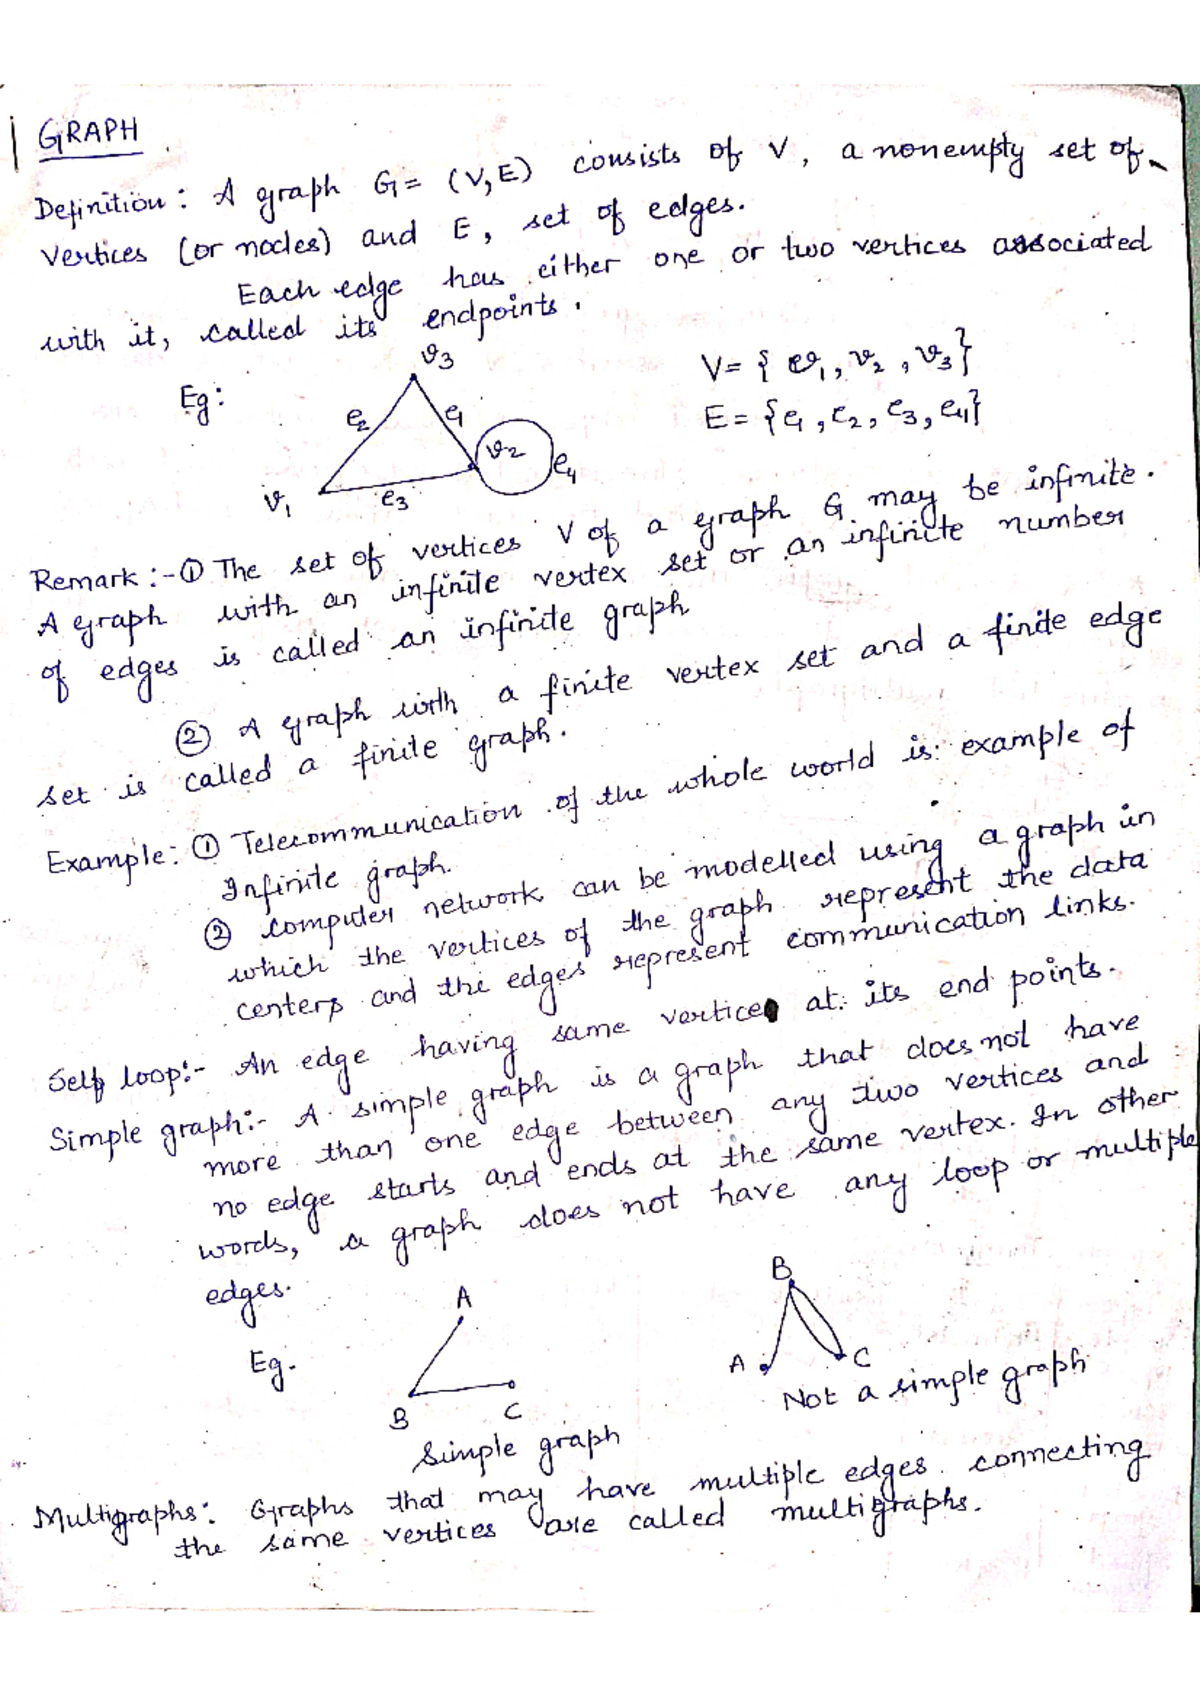 GRAPH
Definition: A graph G = (V,E) consists of V, a nonempty set of
vertices (or nodes) and E, set of edges.
Each edge has either one or two vertices associated
with it, called its endpoints.
Eg:
v3
e2
e1
v2
e4
v1
e3
V = { v1, v2, v3}
E = {e1, e2, e3, e4}
Remark:- ① The set of vertices V of a graph G may be infinite.
A graph with an infinite vertex set or an infinite number
of edges is called an infinite graph
② A graph with a finite vertex set and a finite edge
set is called a finite graph.
Example: ① Telecommunication of the whole world is example of
Infinite graph.
② Computer network can be modelled using a graph in
which the vertices of the graph represent the data
centers and the edges represent communication links.
Self loop:- An edge having same vertices at its end points.
Simple graph:- A simple graph is a graph that does not have
more than one edge between any two vertices and
no edge starts and ends at the same vertex. In other
words, a graph does not have any loop or multiple
edges.
Eg.
A
B
C
Simple graph
B
A
C
Not a simple graph
Multigraphs: Graphs that may have multiple edges connecting
the same vertices are called multigraphs.